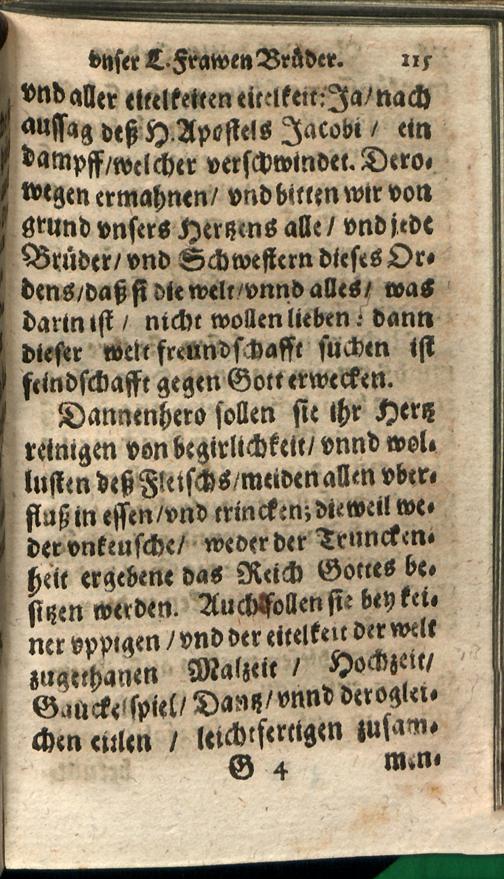 vnser L. Frawen Brüder. 115
vnd aller eitelkeiten eitelkeit: Ja/ nach
aussag deß H. Apostels Jacobi / ein
dampff/welcher verschwindet. Dero-
wegen ermahnen/ vnd bitten wir von
grund vnsers Hertzens alle / vnd jede
Brüder/ vnd Schwestern dieses Or-
dens/daß si die welt/vnnd alles/ was
darin ist / nicht wollen lieben: dann
dieser welt freundschafft suchen ist
feindschafft gegen Gott erwecken.
Dannenhero sollen sie ihr Hertz
reinigen von begirlichkeit/ vnnd wol-
lusten deß Fleischs/meiden allen vber-
fluß in essen/vnd trincken; dieweil we-
der vnkeusche/ weder der Truncken-
heit ergebene das Reich Gottes be-
sitzen werden. Auch sollen sie bey kei-
ner vppigen / vnd der eitelkeit der welt
zugethanen Malzeit / Hochzeit/
Gauckelspiel/ Dantz/ vnnd deroglei-
chen eitlen / leichtfertigen zusam-
G 4 men-